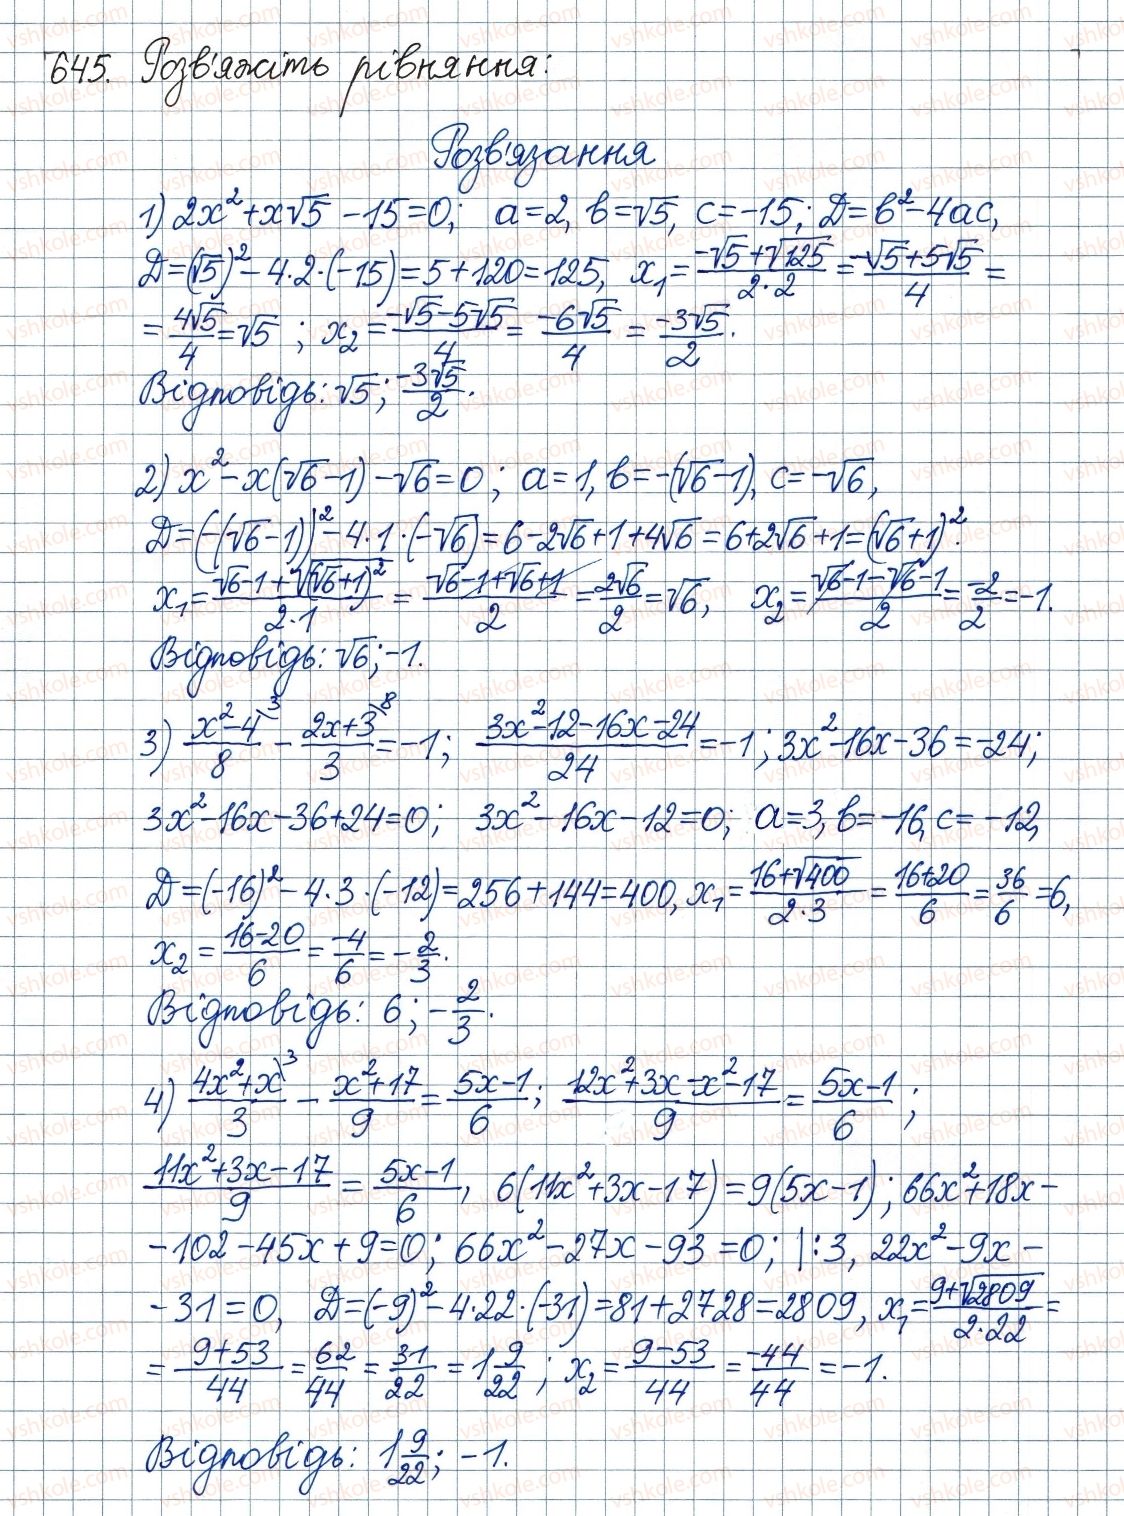 645. Розв'яжіть рівняння:
Розв'язання
1) 2x² + x√5 - 15 = 0; a = 2, b = √5, c = -15; D = b² - 4ac,
D = (√5)² - 4·2·(-15) = 5 + 120 = 125, x₁ = (-√5 + √125)/(2·2) = (-√5 + 5√5)/4 =
= 4√5/4 = √5 ; x₂ = (-√5 - 5√5)/4 = -6√5/4 = -3√5/2.
Відповідь: √5; -3√5/2.
2) x² - x(√6 - 1) - √6 = 0 ; a = 1, b = -(√6 - 1), c = -√6,
D = (-(√6 - 1))² - 4·1·(-√6) = 6 - 2√6 + 1 + 4√6 = 6 + 2√6 + 1 = (√6 + 1)².
x₁ = (√6 - 1 + √(√6 + 1)²)/(2·1) = (√6 - 1 + √6 + 1)/2 = 2√6/2 = √6, x₂ = (√6 - 1 - √6 - 1)/2 = -2/2 = -1.
Відповідь: √6; -1.
3) (x² - 4)/8 \3 - (2x + 3)/3 \8 = -1; (3x² - 12 - 16x - 24)/24 = -1 ; 3x² - 16x - 36 = -24;
3x² - 16x - 36 + 24 = 0; 3x² - 16x - 12 = 0; a = 3, b = -16, c = -12,
D = (-16)² - 4·3·(-12) = 256 + 144 = 400, x₁ = (16 + √400)/(2·3) = (16 + 20)/6 = 36/6 = 6,
x₂ = (16 - 20)/6 = -4/6 = -2/3.
Відповідь: 6; -2/3.
4) (4x² + x)/3 \3 - (x² + 17)/9 = (5x - 1)/6; (12x² + 3x - x² - 17)/9 = (5x - 1)/6 ;
(11x² + 3x - 17)/9 = (5x - 1)/6, 6(11x² + 3x - 17) = 9(5x - 1); 66x² + 18x -
- 102 - 45x + 9 = 0; 66x² - 27x - 93 = 0; |:3, 22x² - 9x -
- 31 = 0, D = (-9)² - 4·22·(-31) = 81 + 2728 = 2809, x₁ = (9 + √2809)/(2·22) =
= (9 + 53)/44 = 62/44 = 31/22 = 1 9/22 ; x₂ = (9 - 53)/44 = -44/44 = -1.
Відповідь: 1 9/22; -1.